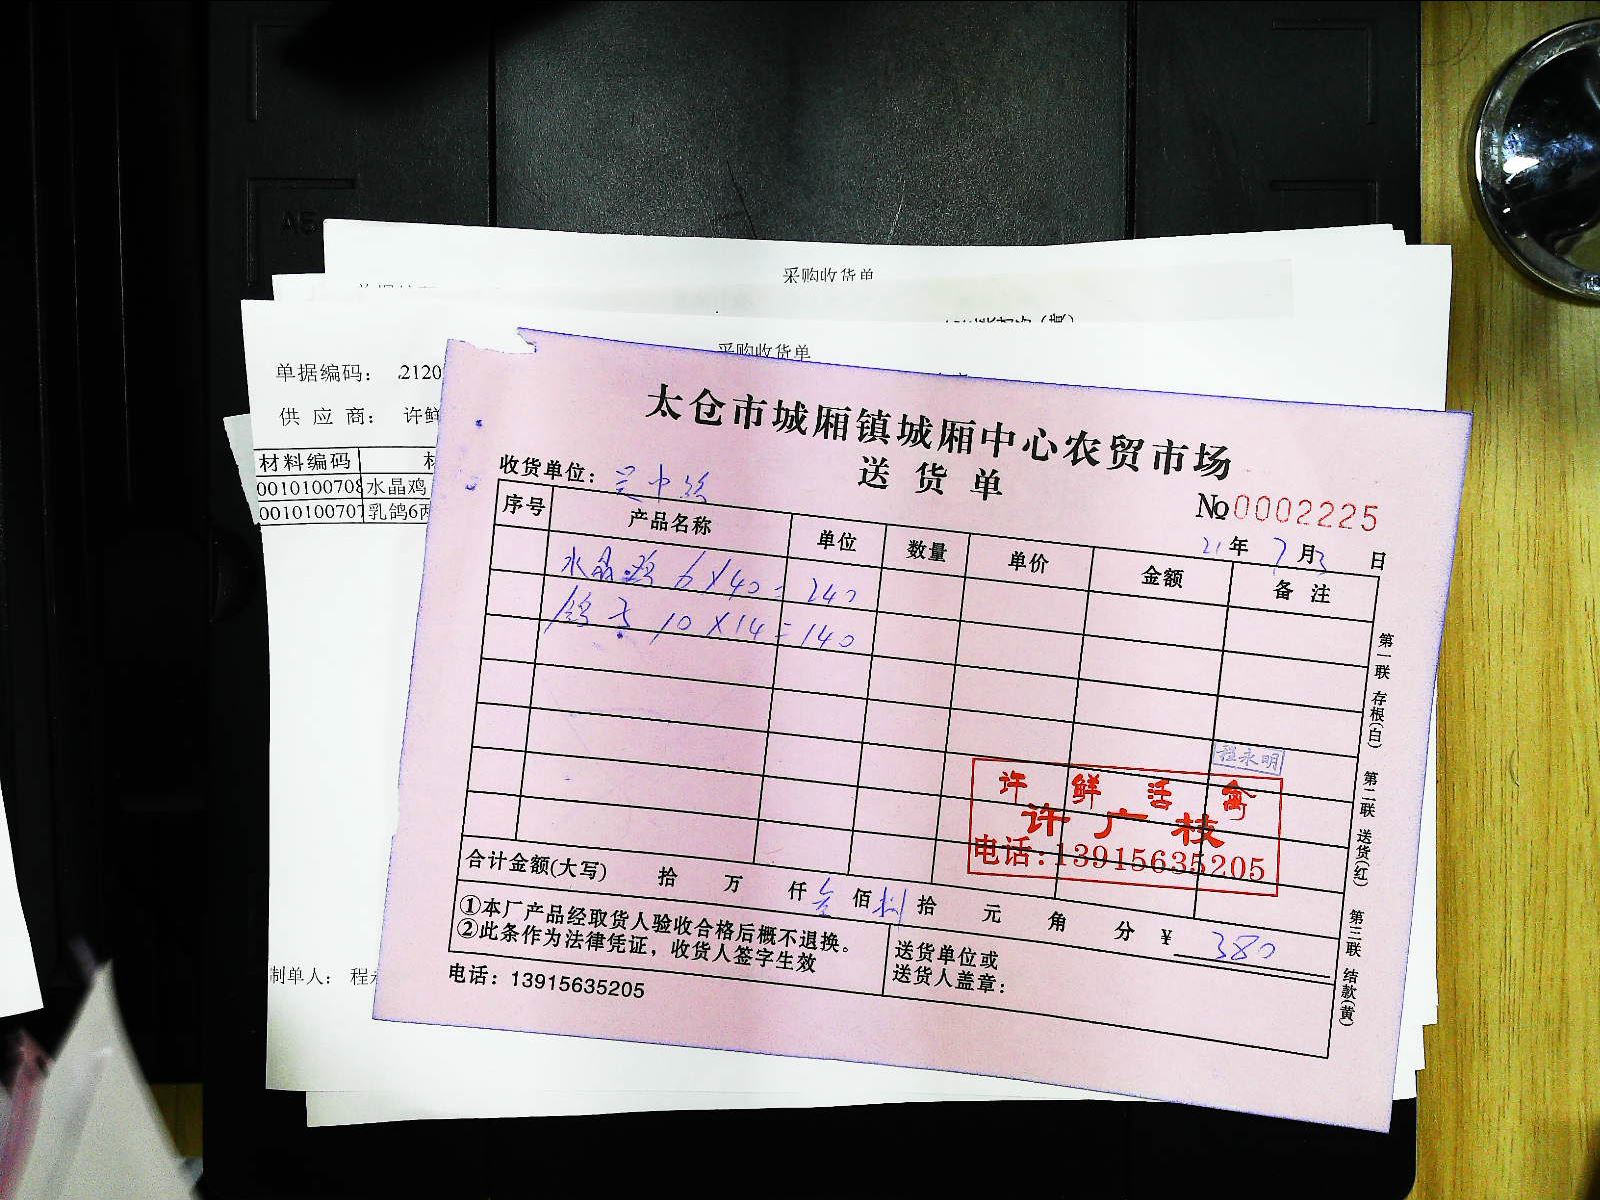 A5
采购收货单
采购收货单
单据编码： 2120
供 应 商： 许鲜
材料编码
0010100708 水晶鸡
0010100707 乳鸽6两
制单人： 程永
太仓市城厢镇城厢中心农贸市场
送 货 单
收货单位：
№0002225
21年7月3日
序号 产品名称 单位 数量 单价 金额 备 注
水晶鸡 6×40=240
鸽子 10×14=140
程永明
许 鲜 活 禽
许广枝
电话:13915635205
合计金额(大写) 拾 万 仟叁佰捌拾 元 角 分 ¥ 380
①本厂产品经取货人验收合格后概不退换。
②此条作为法律凭证，收货人签字生效
送货单位或
送货人盖章：
电话：13915635205
第一联 存根(白)
第二联 送货(红)
第三联 结款(黄)